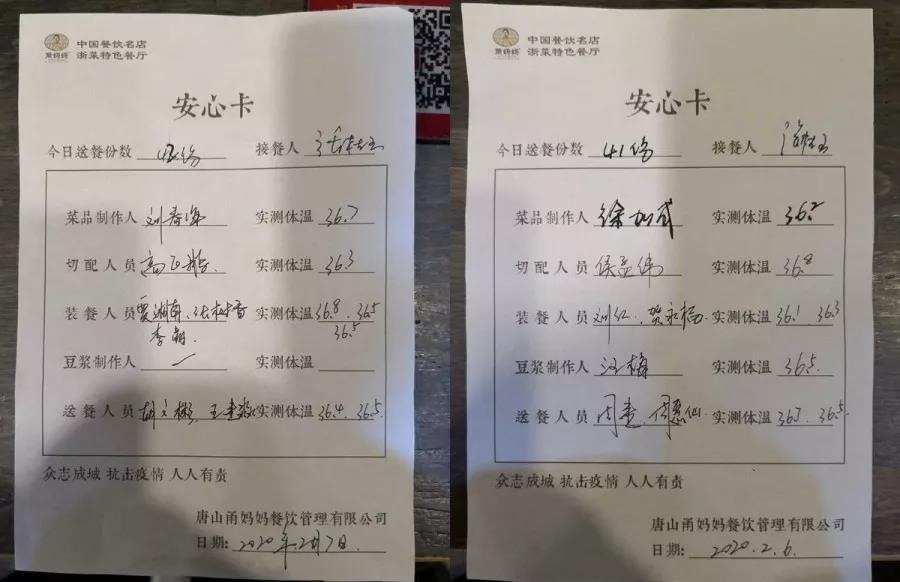 甬妈妈
中国餐饮名店
浙菜特色餐厅
安心卡
今日送餐份数 份 接餐人
菜品制作人 刘春海 实测体温 36.7
切配人员 高 实测体温 36.3
装餐人员 实测体温 36.8 36.5
36.5
豆浆制作人 实测体温
送餐人员 胡文彬 实测体温 36.4 36.5
众志成城 抗击疫情 人人有责
唐山甬妈妈餐饮管理有限公司
日期: 2020年2月7日
甬妈妈
中国餐饮名店
浙菜特色餐厅
安心卡
今日送餐份数 41份 接餐人
菜品制作人 徐 实测体温 36.2
切配人员 侯 伟 实测体温 36.8
装餐人员 刘红 贺永 实测体温 36.1 36.3
豆浆制作人 汪梅 实测体温 36.5
送餐人员 仙 实测体温 36.5
众志成城 抗击疫情 人人有责
唐山甬妈妈餐饮管理有限公司
日期: 2020.2.6